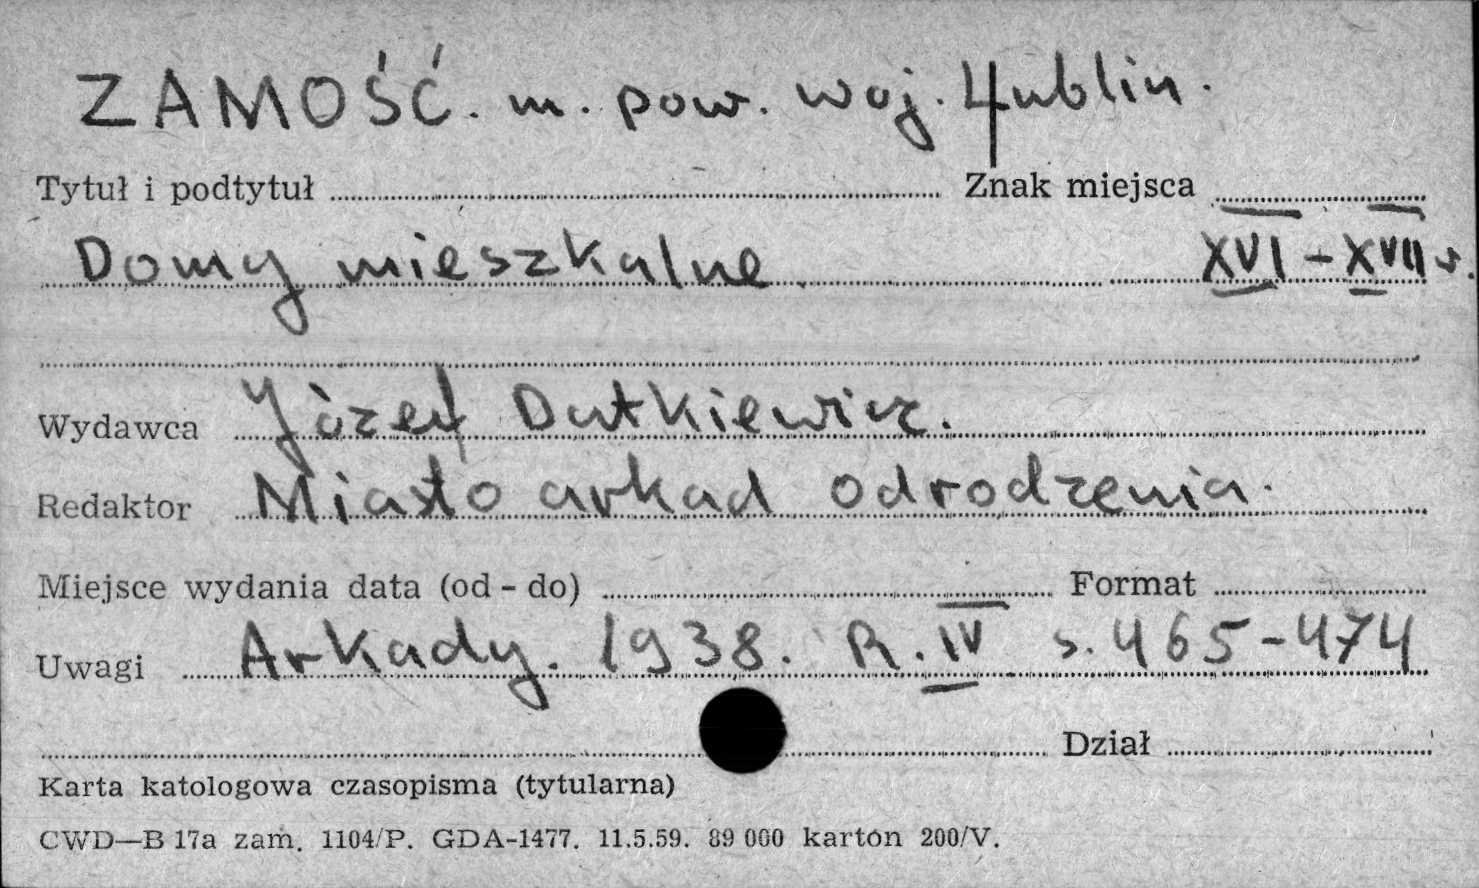 ZAMOŚĆ. m. pow. woj. Lublin.
Tytuł i podtytuł Znak miejsca
Domy mieszkalne. XVI - XVII w.
Wydawca Józef Dutkiewicz.
Redaktor Miasto arkad odrodzenia.
Miejsce wydania data (od - do) Format
Uwagi Arkady. 1938. R. IV s. 465-474
Dział
Karta katologowa czasopisma (tytularna)
CWD—B 17a zam. 1104/P. GDA-1477. 11.5.59. 89 000 karton 200/V.